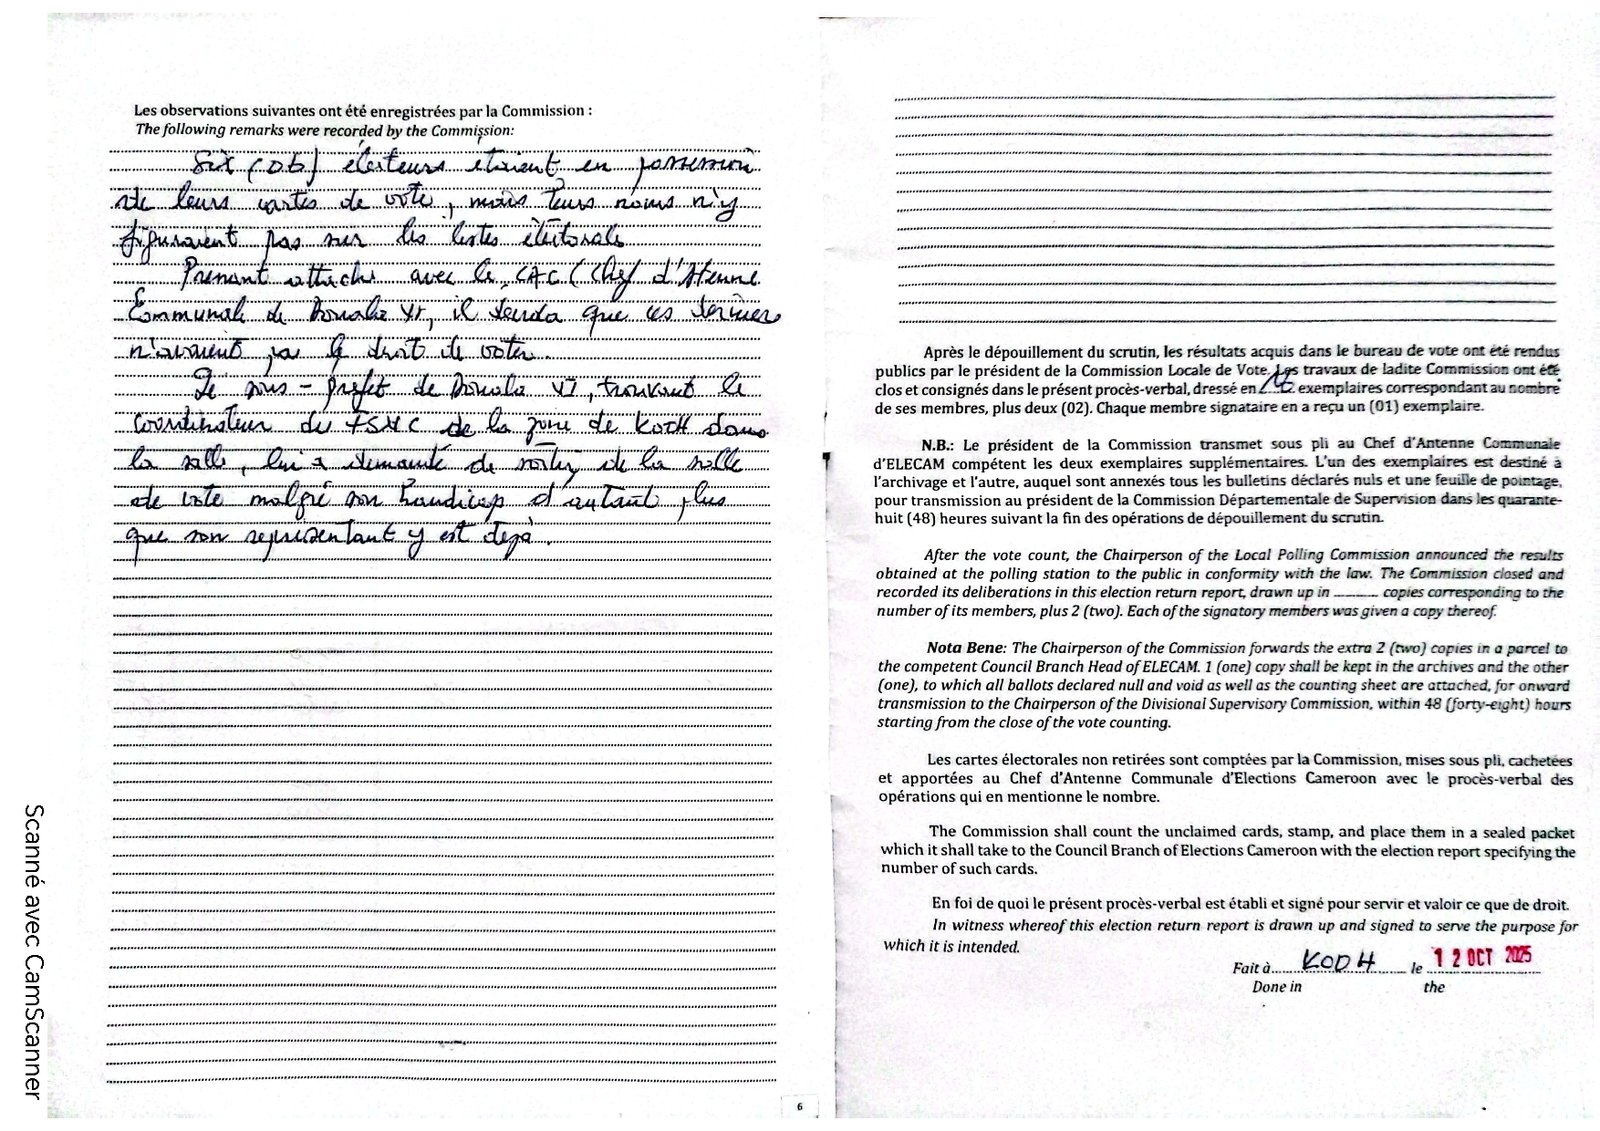 Les observations suivantes ont été enregistrées par la Commission :
The following remarks were recorded by the Commission:
Six (06) électeurs étaient en possession
de leurs cartes de vote, mais leurs noms n'y
figuraient pas sur les listes électorale
Prenant attache avec le CAC (Chef d'Atenne
Communale de Douala VI, il que ces derniers
n'avaient pas le droit de voter.
Le sous-prefet de Douala VI, trouvant le
coordinateur du FSNC de la zone de KODH dans
la salle, lui a demandé de sortir de la salle
de vote malgré son handicap d'autant plus
que son représentant y est dejà.
6
Après le dépouillement du scrutin, les résultats acquis dans le bureau de vote ont été rendus
publics par le président de la Commission Locale de Vote. Les travaux de ladite Commission ont été
clos et consignés dans le présent procès-verbal, dressé en exemplaires correspondant au nombre
de ses membres, plus deux (02). Chaque membre signataire en a reçu un (01) exemplaire.
N.B.: Le président de la Commission transmet sous pli au Chef d'Antenne Communale
d'ELECAM compétent les deux exemplaires supplémentaires. L'un des exemplaires est destiné à
l'archivage et l'autre, auquel sont annexés tous les bulletins déclarés nuls et une feuille de pointage,
pour transmission au président de la Commission Départementale de Supervision dans les quarante-
huit (48) heures suivant la fin des opérations de dépouillement du scrutin.
After the vote count, the Chairperson of the Local Polling Commission announced the results
obtained at the polling station to the public in conformity with the law. The Commission closed and
recorded its deliberations in this election return report, drawn up in ........ copies corresponding to the
number of its members, plus 2 (two). Each of the signatory members was given a copy thereof.
Nota Bene: The Chairperson of the Commission forwards the extra 2 (two) copies in a parcel to
the competent Council Branch Head of ELECAM. 1 (one) copy shall be kept in the archives and the other
(one), to which all ballots declared null and void as well as the counting sheet are attached, for onward
transmission to the Chairperson of the Divisional Supervisory Commission, within 48 (forty-eight) hours
starting from the close of the vote counting.
Les cartes électorales non retirées sont comptées par la Commission, mises sous pli, cachetées
et apportées au Chef d'Antenne Communale d'Elections Cameroon avec le procès-verbal des
opérations qui en mentionne le nombre.
The Commission shall count the unclaimed cards, stamp, and place them in a sealed packet
which it shall take to the Council Branch of Elections Cameroon with the election report specifying the
number of such cards.
En foi de quoi le présent procès-verbal est établi et signé pour servir et valoir ce que de droit.
In witness whereof this election return report is drawn up and signed to serve the purpose for
which it is intended.
Fait à KODH le 12 OCT 2025
Done in the
Scanné avec CamScanner